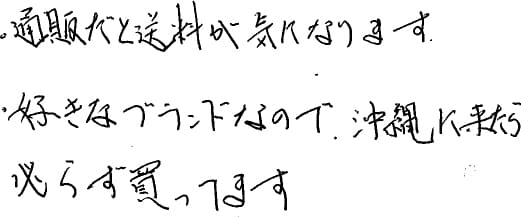 ・通販だと送料が気になります.
・好きなブランドなので、沖縄に来たら
必らず買ってます